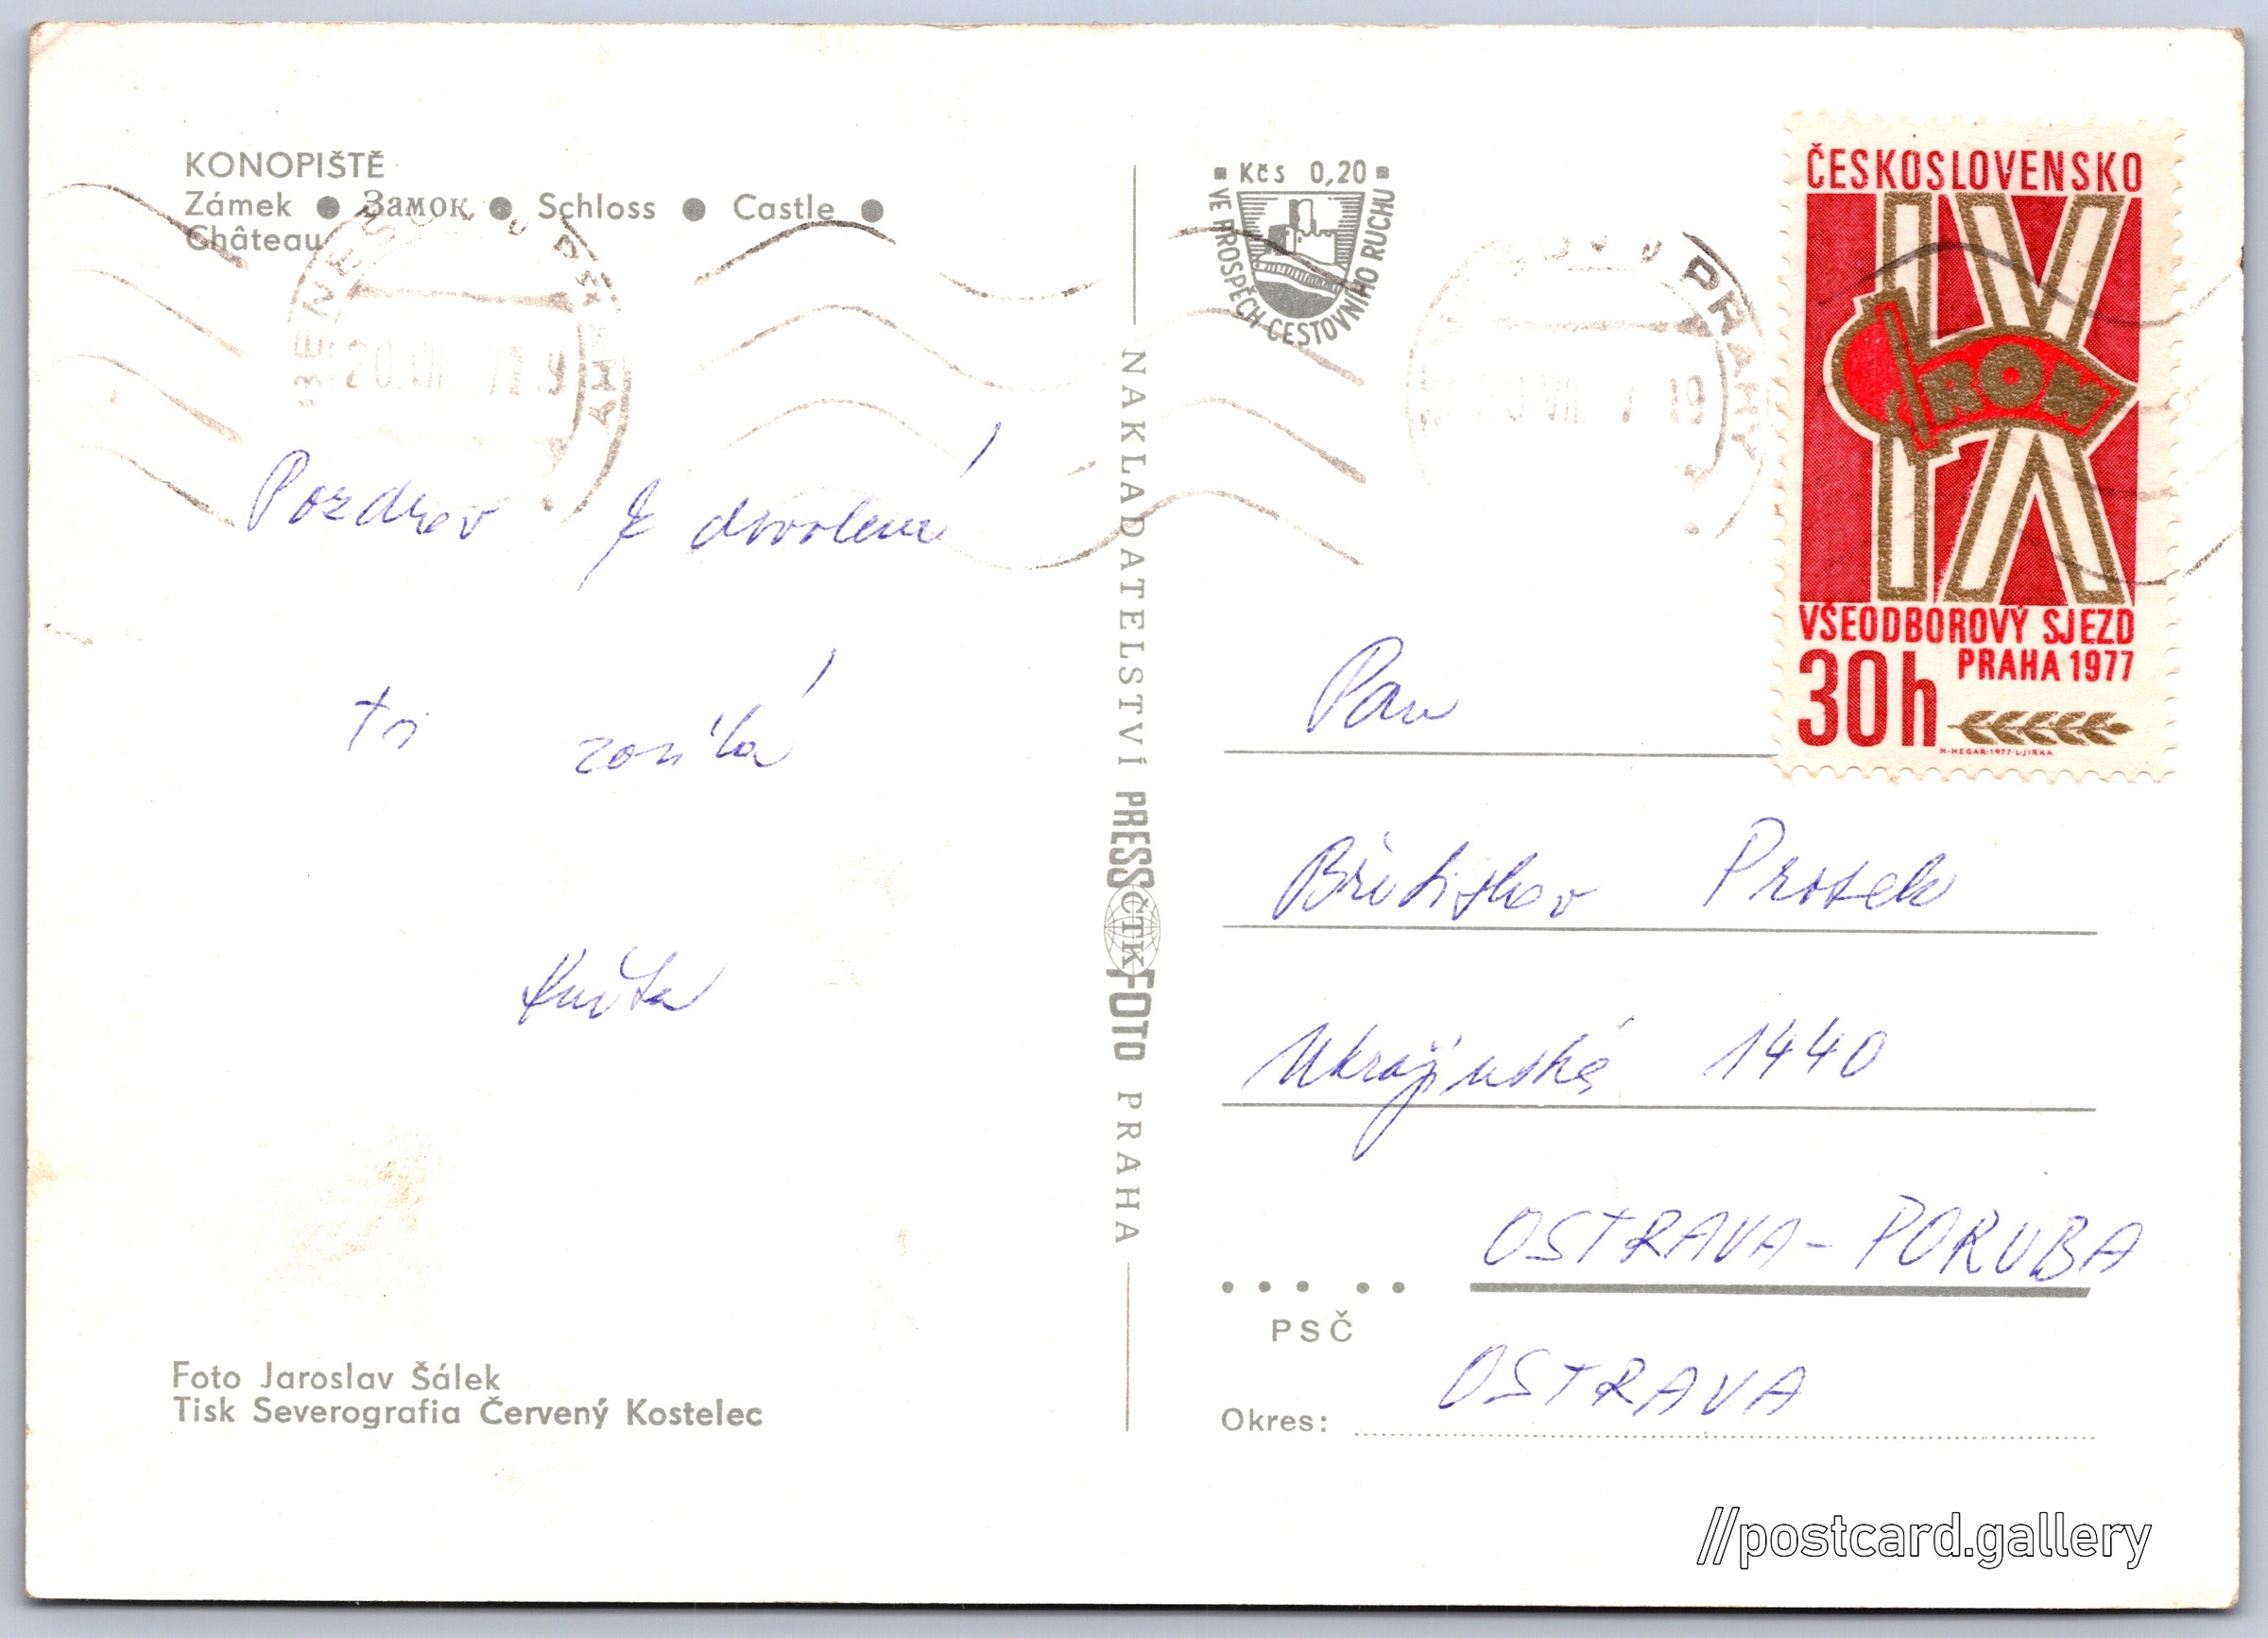 KONOPIŠTĚ
Zámek ● Замок ● Schloss ● Castle ●
Château
Pozdrav z dovolené
ti zasílá
Květa
Foto Jaroslav Šálek
Tisk Severografia Červený Kostelec
NAKLADATELSTVÍ PRESSFOTO PRAHA
ČTK
Kčs 0,20
VE PROSPĚCH CESTOVNÍHO RUCHU
BENEŠOV U PRAHY
U PRAHY
ČESKOSLOVENSKO
IX
ROH
VŠEODBOROVÝ SJEZD
PRAHA 1977
30h
M·HEGAR·1977·L·JIRKA
Pan
Břetislav Prosek
Ukrajinská 1440
OSTRAVA-PORUBA
PSČ
OSTRAVA
Okres:
//postcard.gallery